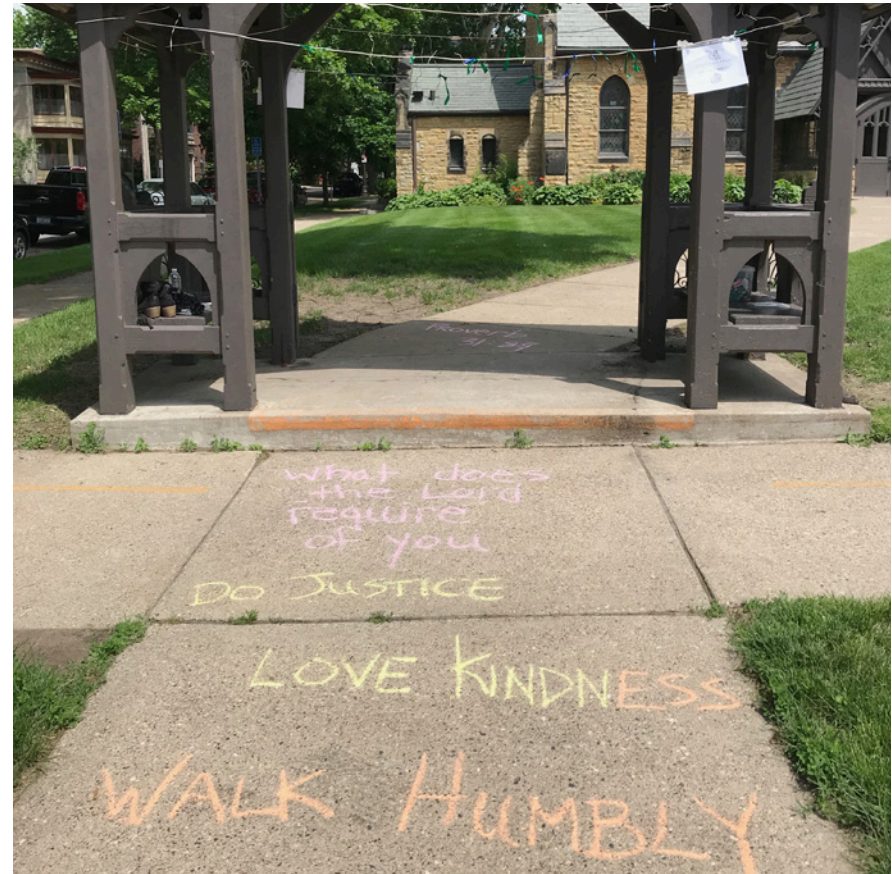 Proverbs
31:8-9
What does
the Lord
require
of you
DO JUSTICE
LOVE KINDNESS
WALK HUMBLY